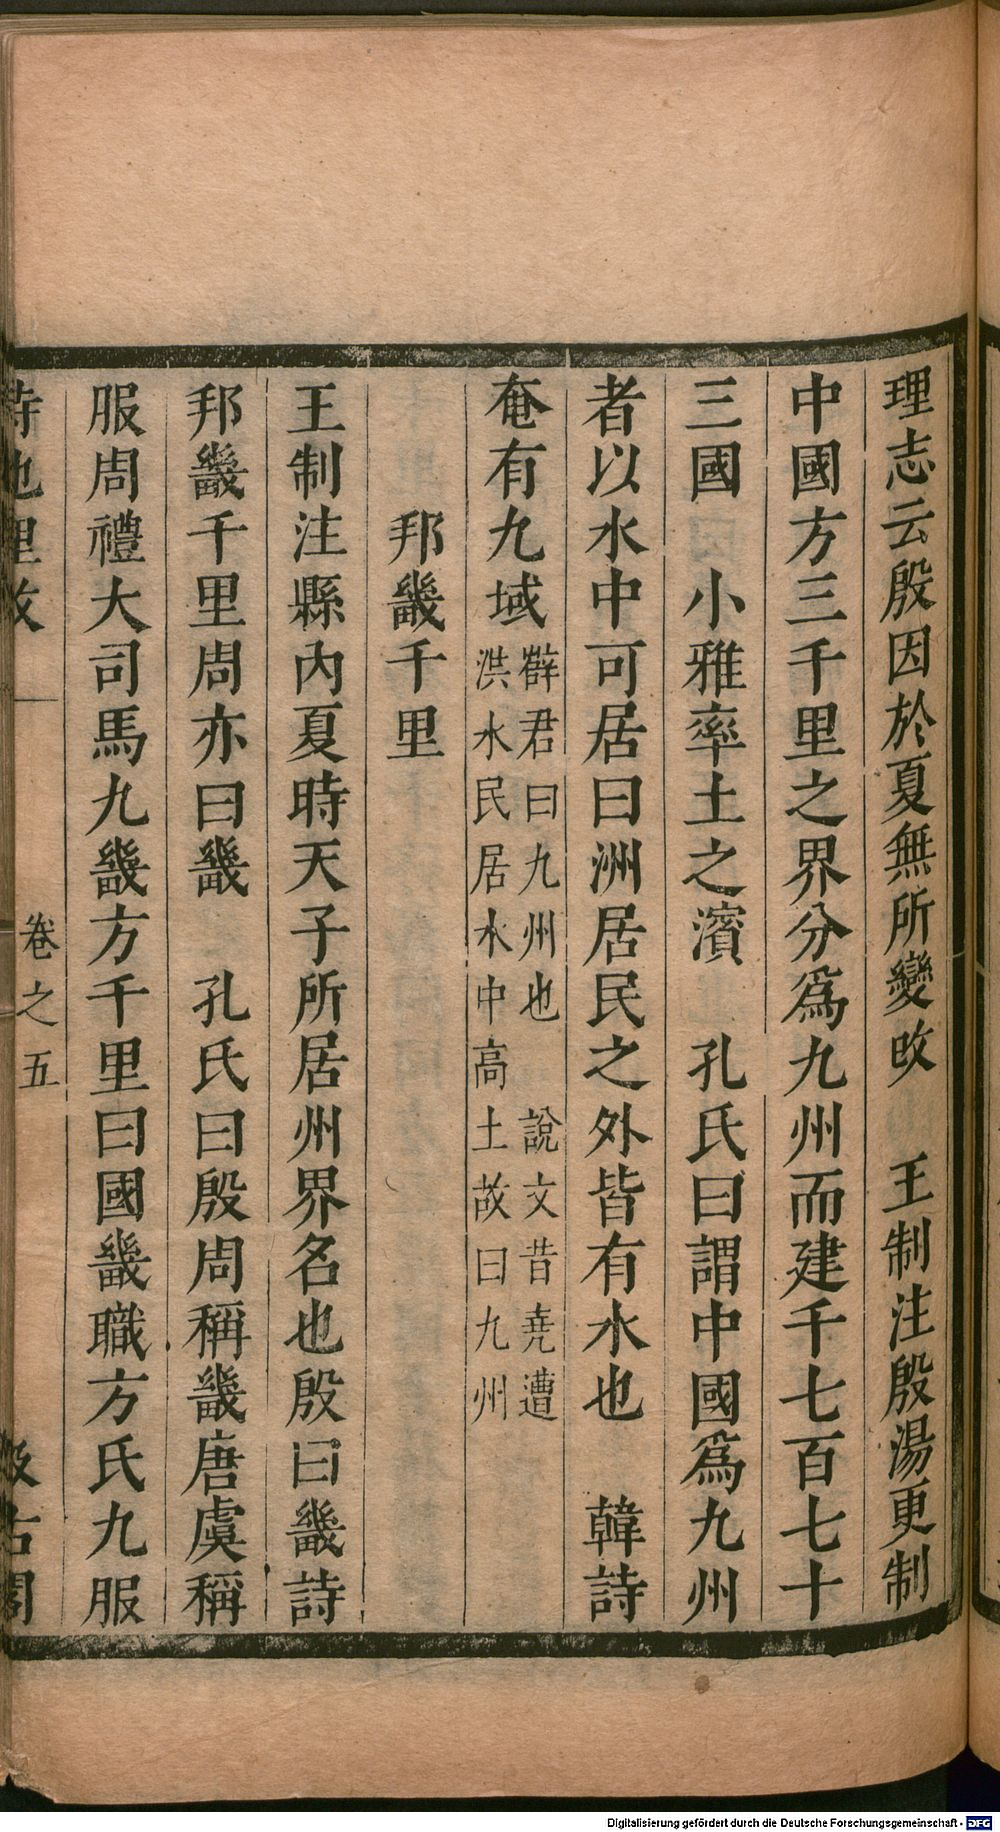 理志云殷因於夏無所變改　王制注殷湯更制
中國方三千里之界分爲九州而建千七百七十
三國　小雅率土之濱　孔氏曰謂中國爲九州
者以水中可居曰洲居民之外皆有水也　韓詩
奄有九域
薛君曰九州也　說文昔堯遭
洪水民居水中高土故曰九州
邦畿千里
王制注縣內夏時天子所居州界名也殷曰畿詩
邦畿千里周亦曰畿　孔氏曰殷周稱畿唐虞稱
服周禮大司馬九畿方千里曰國畿職方氏九服
詩地理攷　卷之五　汲古閣
Digitalisierung gefördert durch die Deutsche Forschungsgemeinschaft - DFG